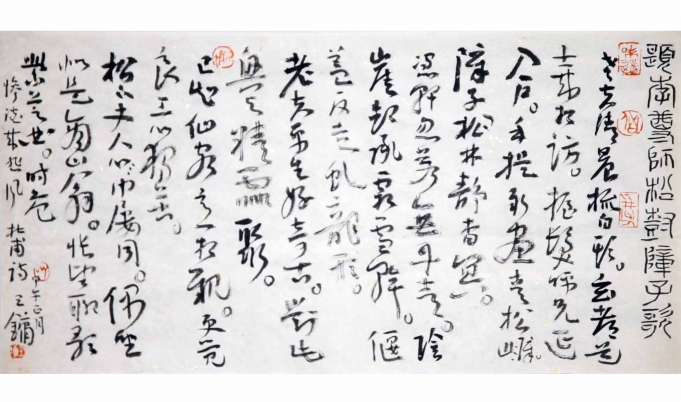 題李尊師松樹障子歌
老夫清晨梳白頭。玄都道
士來相訪。握髮呼兒延
入戶。手提新畫青松障
障子松林靜杳冥。
憑軒忽若無丹青。陰
崖却承霜雪幹。偃
蓋反走虬龍形。
老夫平生好奇古。對此
興與精靈聚。
已知仙客意相親。更覺
良工心獨苦。
松下丈人巾屨同。偶坐
似是商山翁。悵望聊歌
紫芝曲。時危
慘澹來悲風 杜甫詩 甲午正月 王鏞